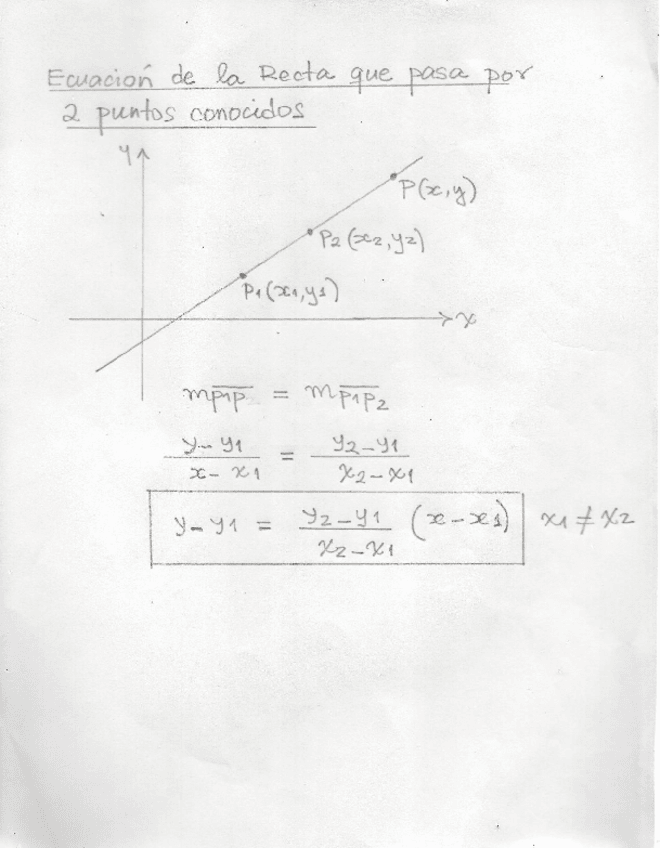 Ecuación de la Recta que pasa por
2 puntos conocidos
y
P(x,y)
P2(x2,y2)
P1(x1,y1)
x
mP1P = mP1P2
y-y1 / x-x1 = y2-y1 / x2-x1
y-y1 = y2-y1 / x2-x1 (x-x1) x1≠x2